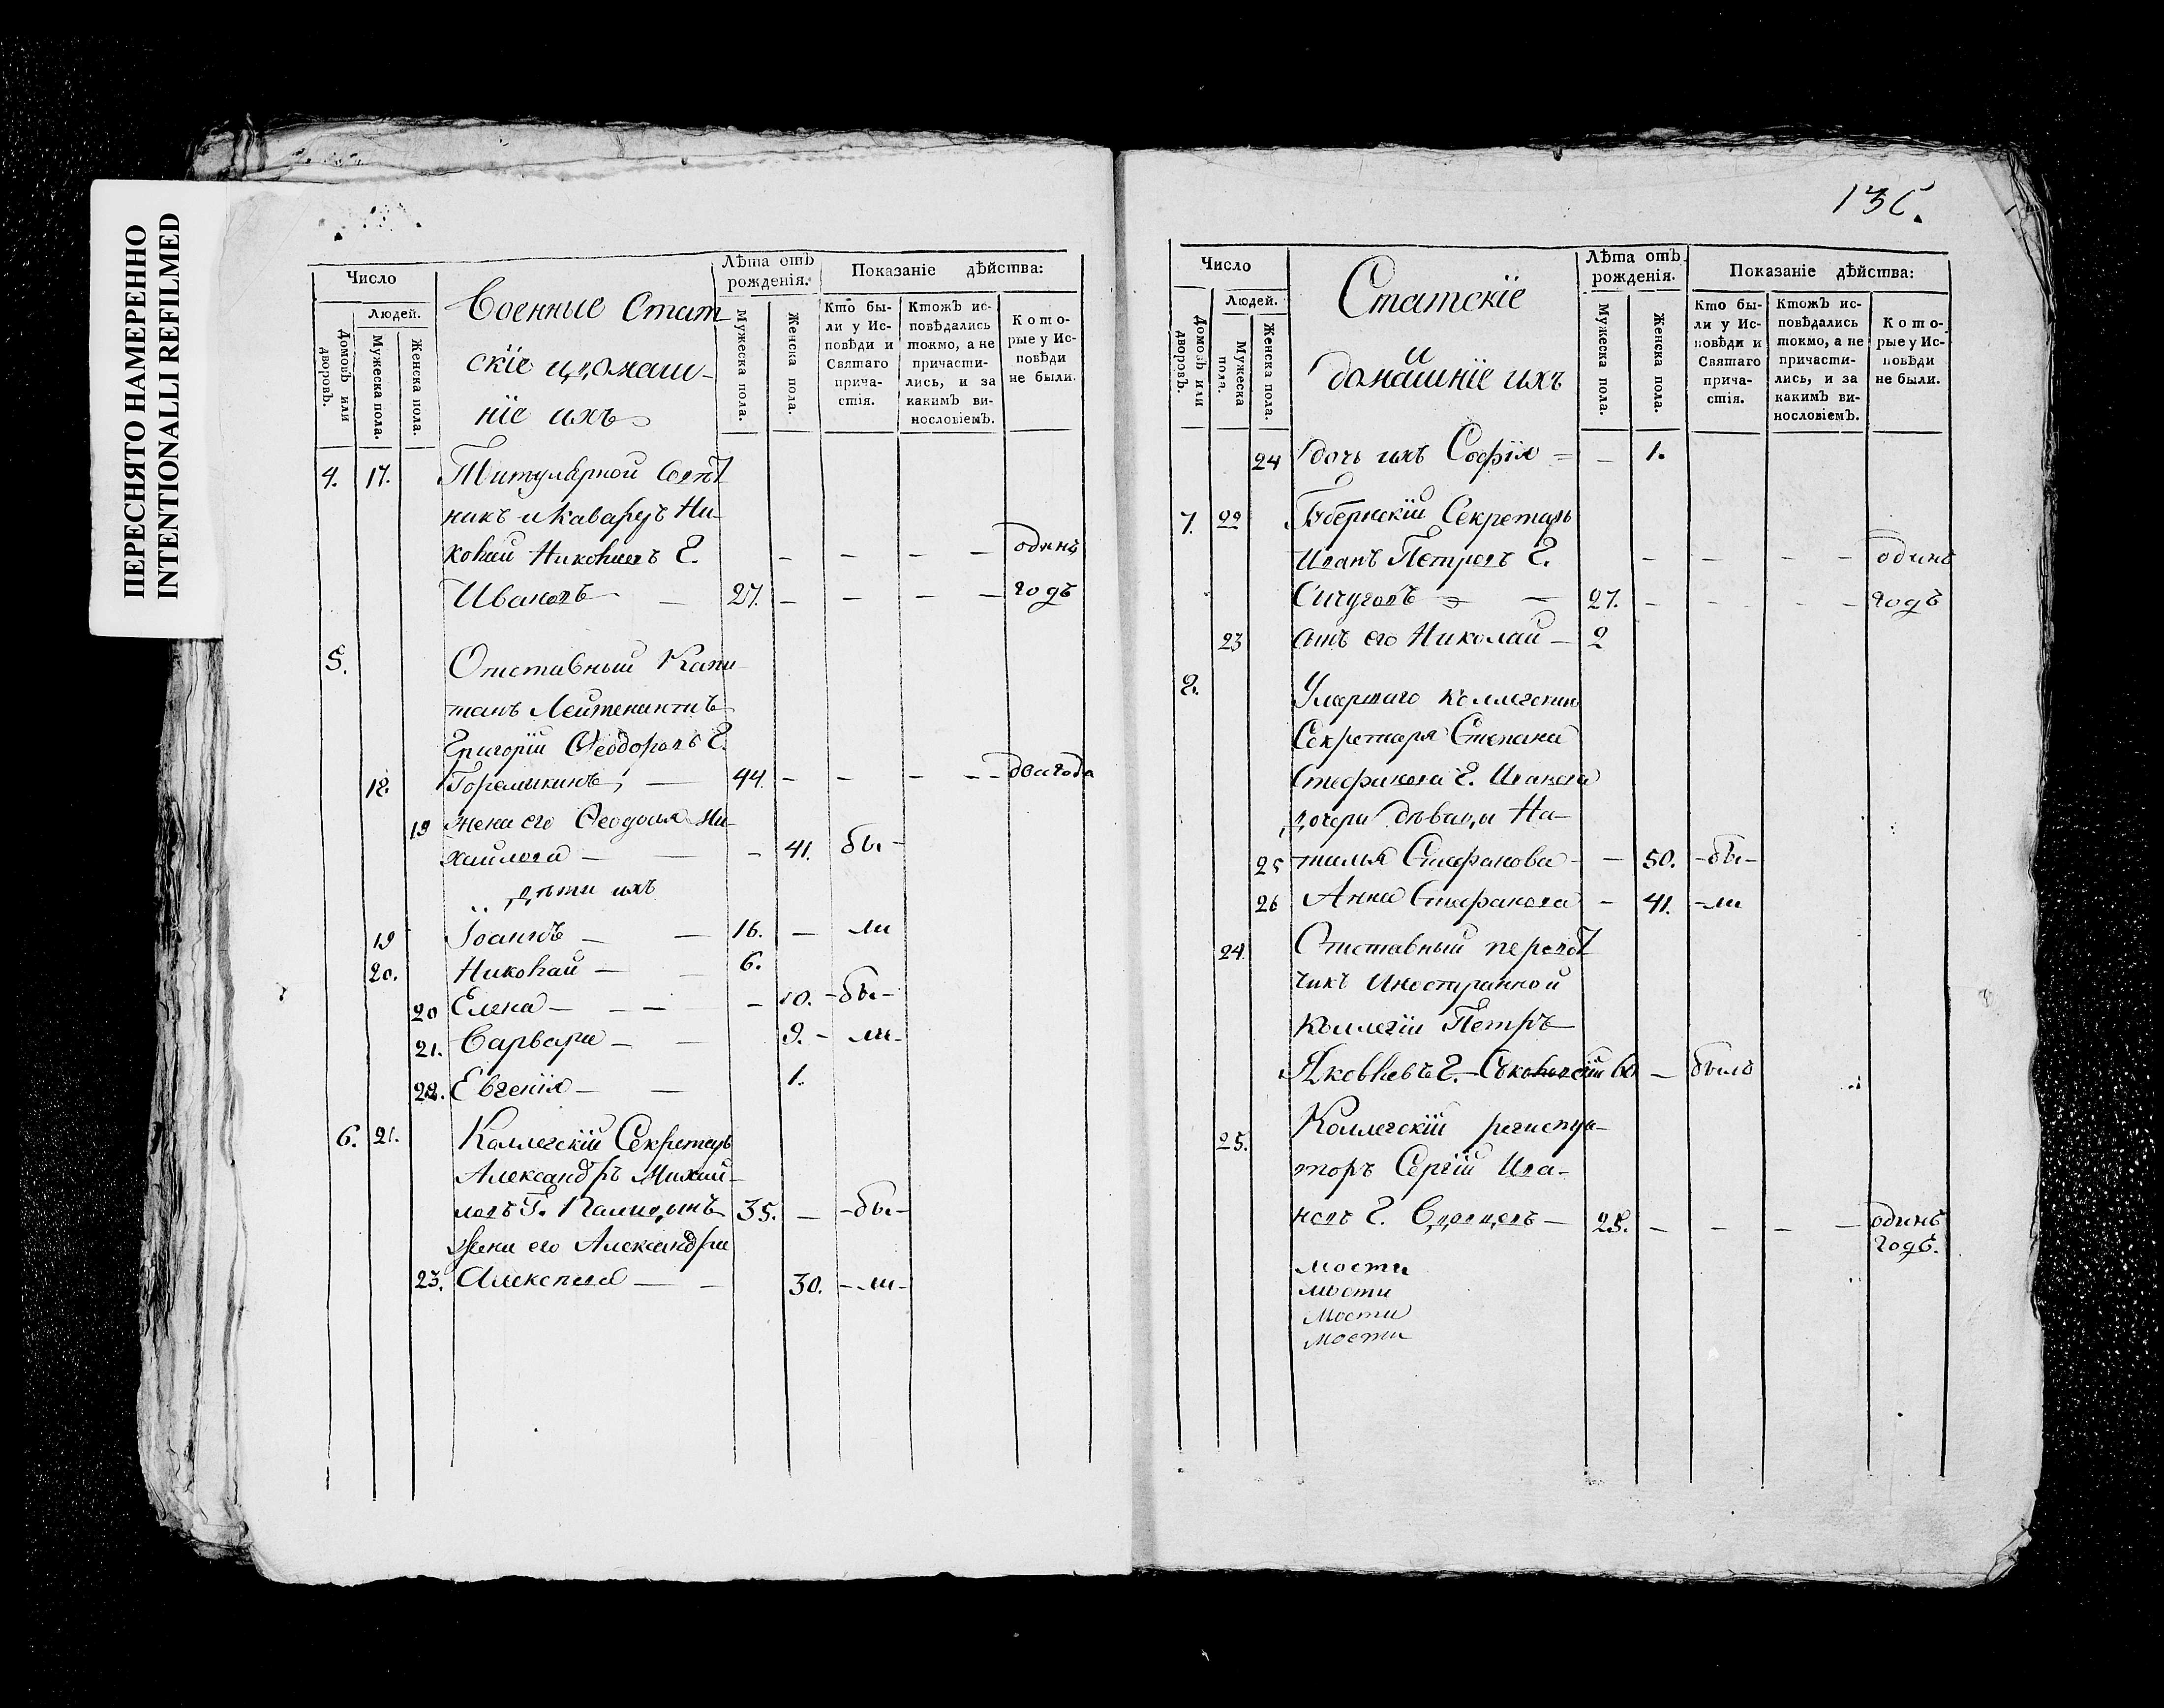 ПЕРЕСНЯТО НАМЕРЕННО
INTENTIONALLI REFILMED
Число
Людей.
Домовъ или дворовъ.
Мужеска пола.
Женска пола.
Военные Стат
скіе и домаш-
ніе ихъ
Лѣта отъ
рожденія.
Мужеска пола.
Женска пола.
Показаніе дѣйства:
Кто бы-
ли у Ис-
повѣди и
Святаго
прича-
стія.
Ктожъ ис-
повѣдались
токмо, а не
причасти-
лись, и за
какимъ ви-
нословіемъ.
Кото-
рые у Ис-
повѣди
не были.
4. 17. Титулярной Совѣт
никъ и Кавалеръ Ни-
колай Николаевъ Г. — — — — одинъ
Ивановъ — 27. — — — — годъ
5. Отставный Капи-
танъ Лейтенантъ
Григорій Ѳеодоровъ Г.
18. Горемыкинъ, — 44. — — — — два года
19 жена его Ѳеодосья Ми-
хайлова — — — 41. бы-
дѣти ихъ
19 Іоаннъ — — 16. — ли
20. Николай — — 6.
20 Елена — — — — 10. -бы-
21. Варвара — — 9. - ли-
22. Евгенія — — 1.
6. 21. Коллегскій Секретарь
Александръ Михай-
ловъ Г. 35. — -бы-
жена его Александра
23. Алексѣева — — 30. - ли-
136.
Число
Людей.
Домовъ или дворовъ.
Мужеска пола.
Женска пола.
Статскіе
и
домашніе ихъ
Лѣта отъ
рожденія.
Мужеска пола.
Женска пола.
Показаніе дѣйства:
Кто бы-
ли у Ис-
повѣди и
Святаго
прича-
стія.
Ктожъ ис-
повѣдались
токмо, а не
причасти-
лись, и за
какимъ ви-
нословіемъ.
Кото-
рые у Ис-
повѣди
не были.
24 дочь ихъ Софія = — 1.
7. 22 Губернскій Секретарь
Иванъ Петровъ Г. — — — — одинъ
Сичуговъ — 27. — — — — годъ
23 сынъ его Николай — 2
8. Умершаго Коллегскаго
Секретаря Стефана
Стефанова Г. Иванова
дочери дѣвицы На-
25 талья Стефанова — — 50. -бы-
26 Анна Стефанова — 41. -ли
24. Отставный перевод
чикъ Иностранной
Коллегіи Петръ
Яковлевъ Г. Соколовскій 60 — былъ
25. Коллегскій регистра-
торъ Сергій Ива-
новъ Г. — 25. — — — — одинъ
годъ.
мости
мости
мости
мости